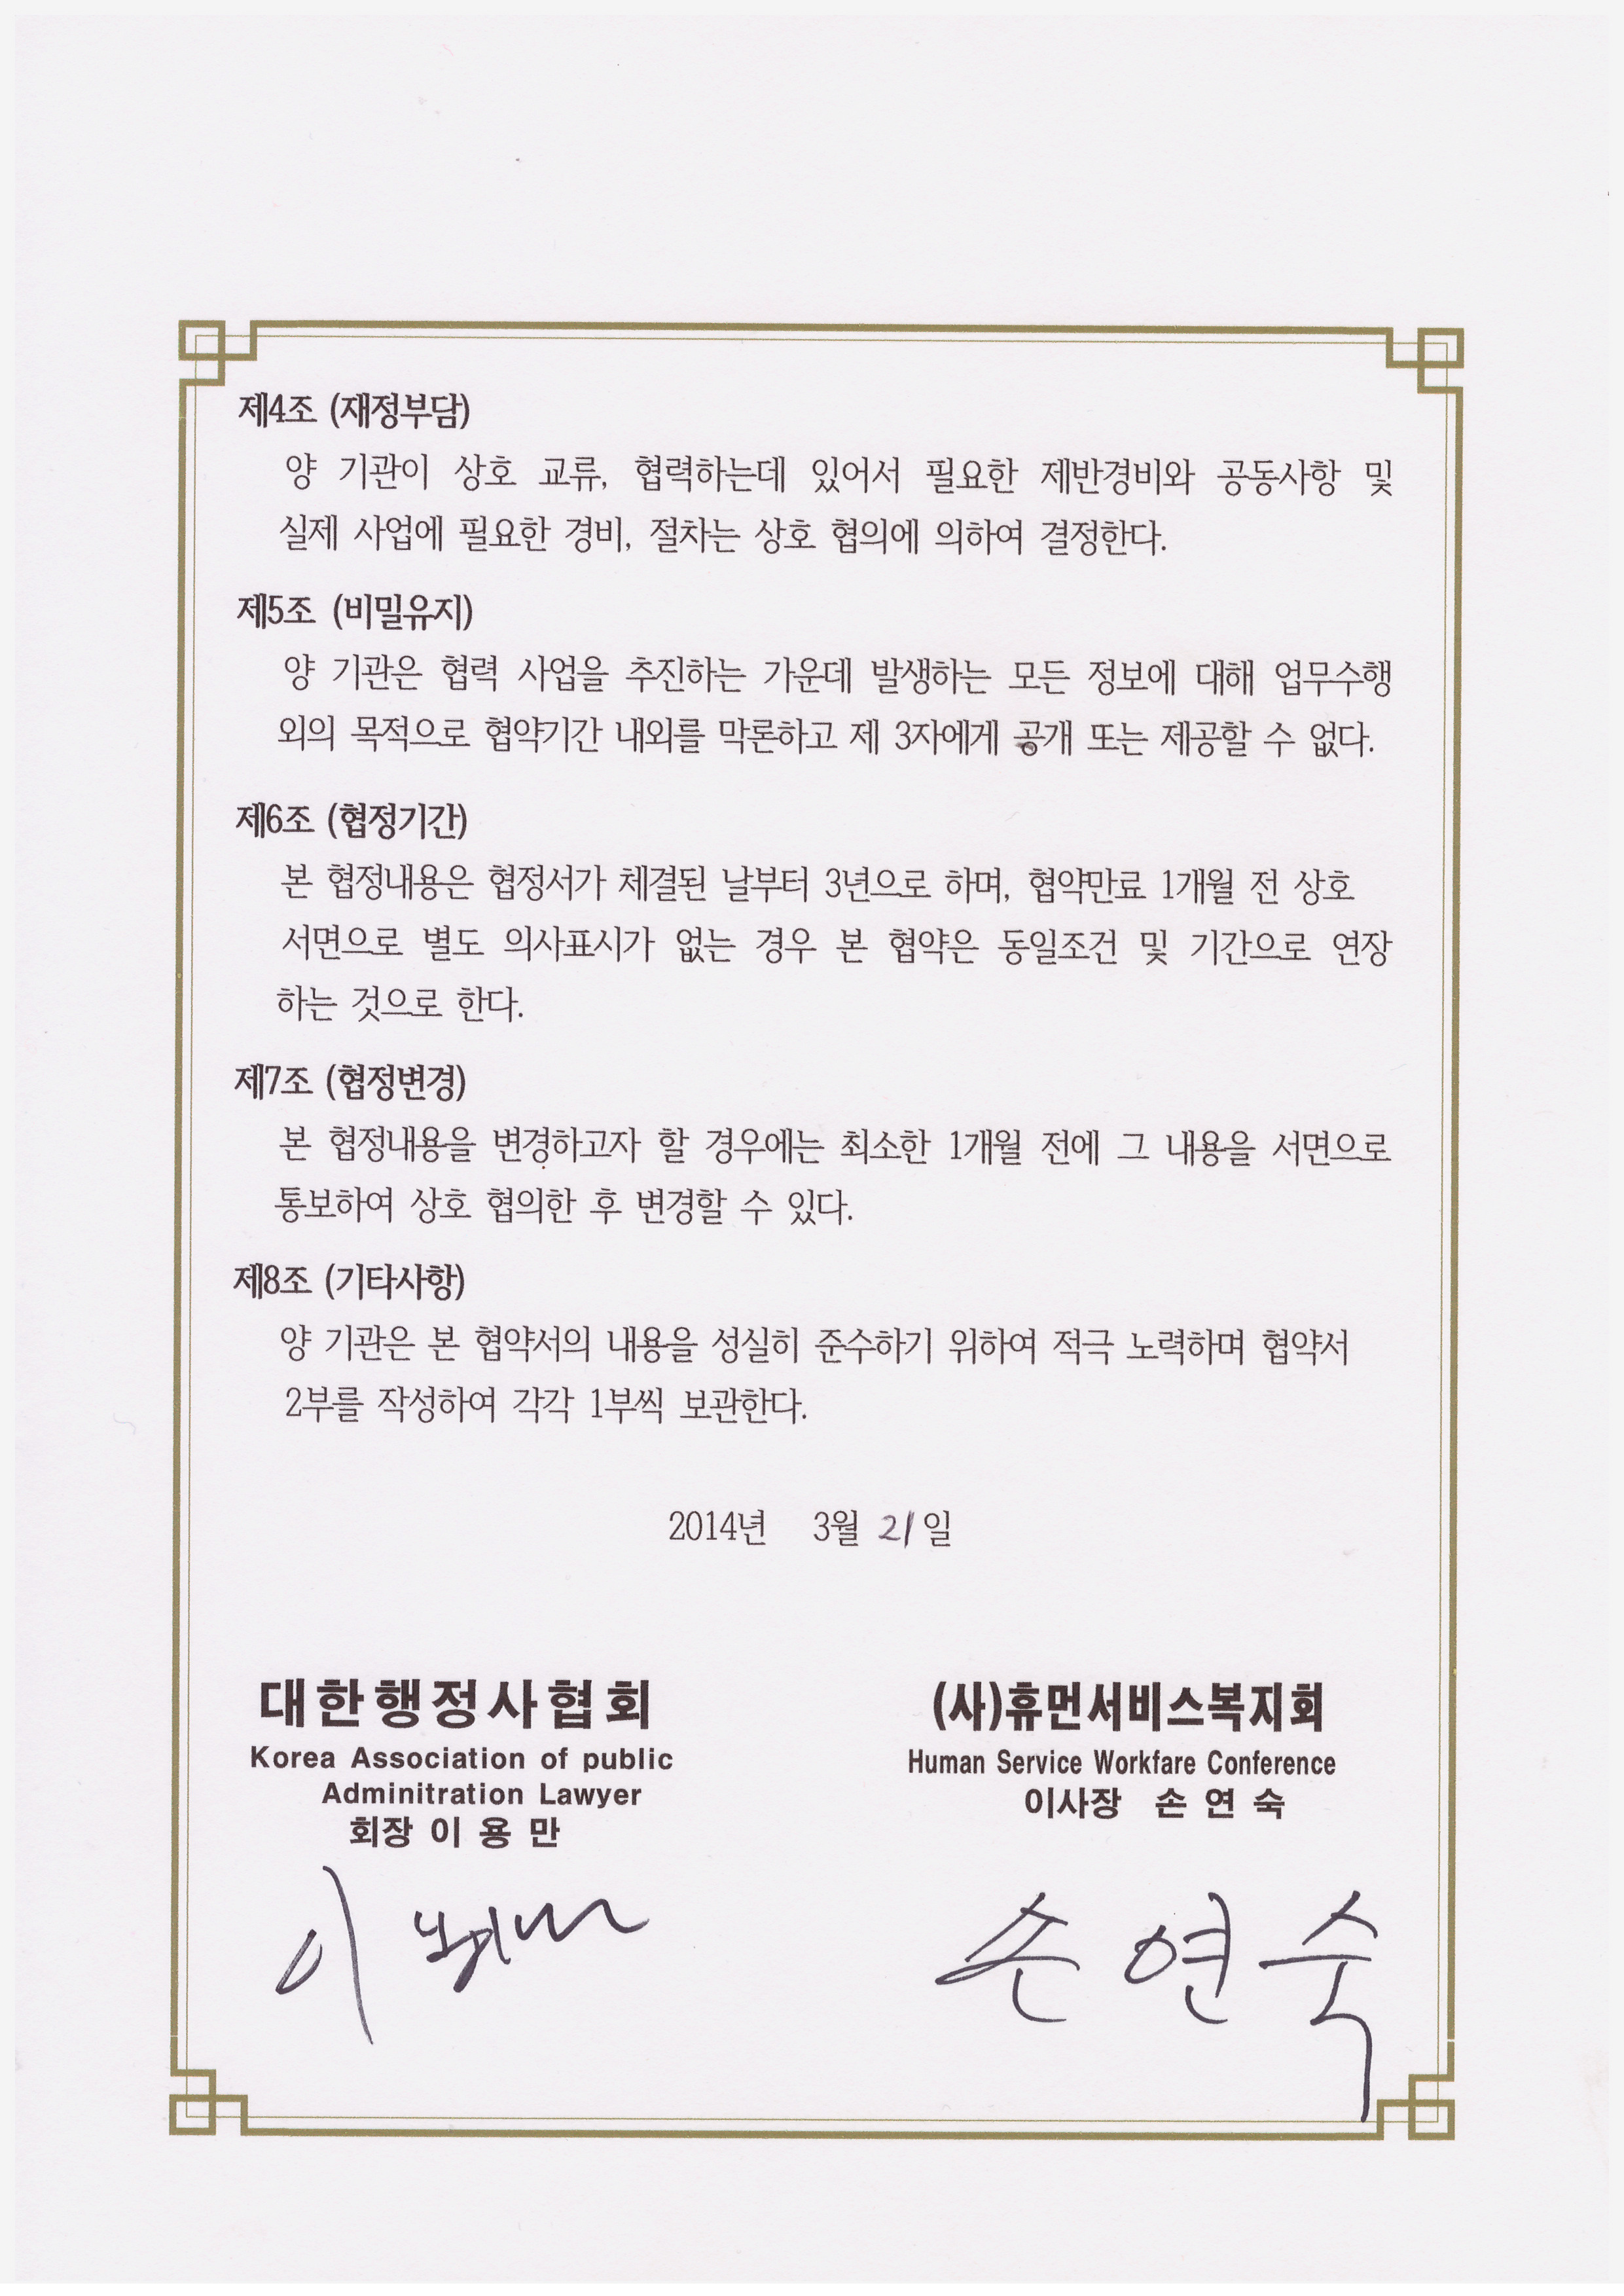 제4조 (재정부담)
양 기관이 상호 교류, 협력하는데 있어서 필요한 제반경비와 공동사항 및
실제 사업에 필요한 경비, 절차는 상호 협의에 의하여 결정한다.
제5조 (비밀유지)
양 기관은 협력 사업을 추진하는 가운데 발생하는 모든 정보에 대해 업무수행
외의 목적으로 협약기간 내외를 막론하고 제 3자에게 공개 또는 제공할 수 없다.
제6조 (협정기간)
본 협정내용은 협정서가 체결된 날부터 3년으로 하며, 협약만료 1개월 전 상호
서면으로 별도 의사표시가 없는 경우 본 협약은 동일조건 및 기간으로 연장
하는 것으로 한다.
제7조 (협정변경)
본 협정내용을 변경하고자 할 경우에는 최소한 1개월 전에 그 내용을 서면으로
통보하여 상호 협의한 후 변경할 수 있다.
제8조 (기타사항)
양 기관은 본 협약서의 내용을 성실히 준수하기 위하여 적극 노력하며 협약서
2부를 작성하여 각각 1부씩 보관한다.
2014년 3월 21일
대한행정사협회
Korea Association of public
Adminitration Lawyer
회장 이 용 만
(사)휴먼서비스복지회
Human Service Workfare Conference
이사장 손 연 숙
이
손 연 숙